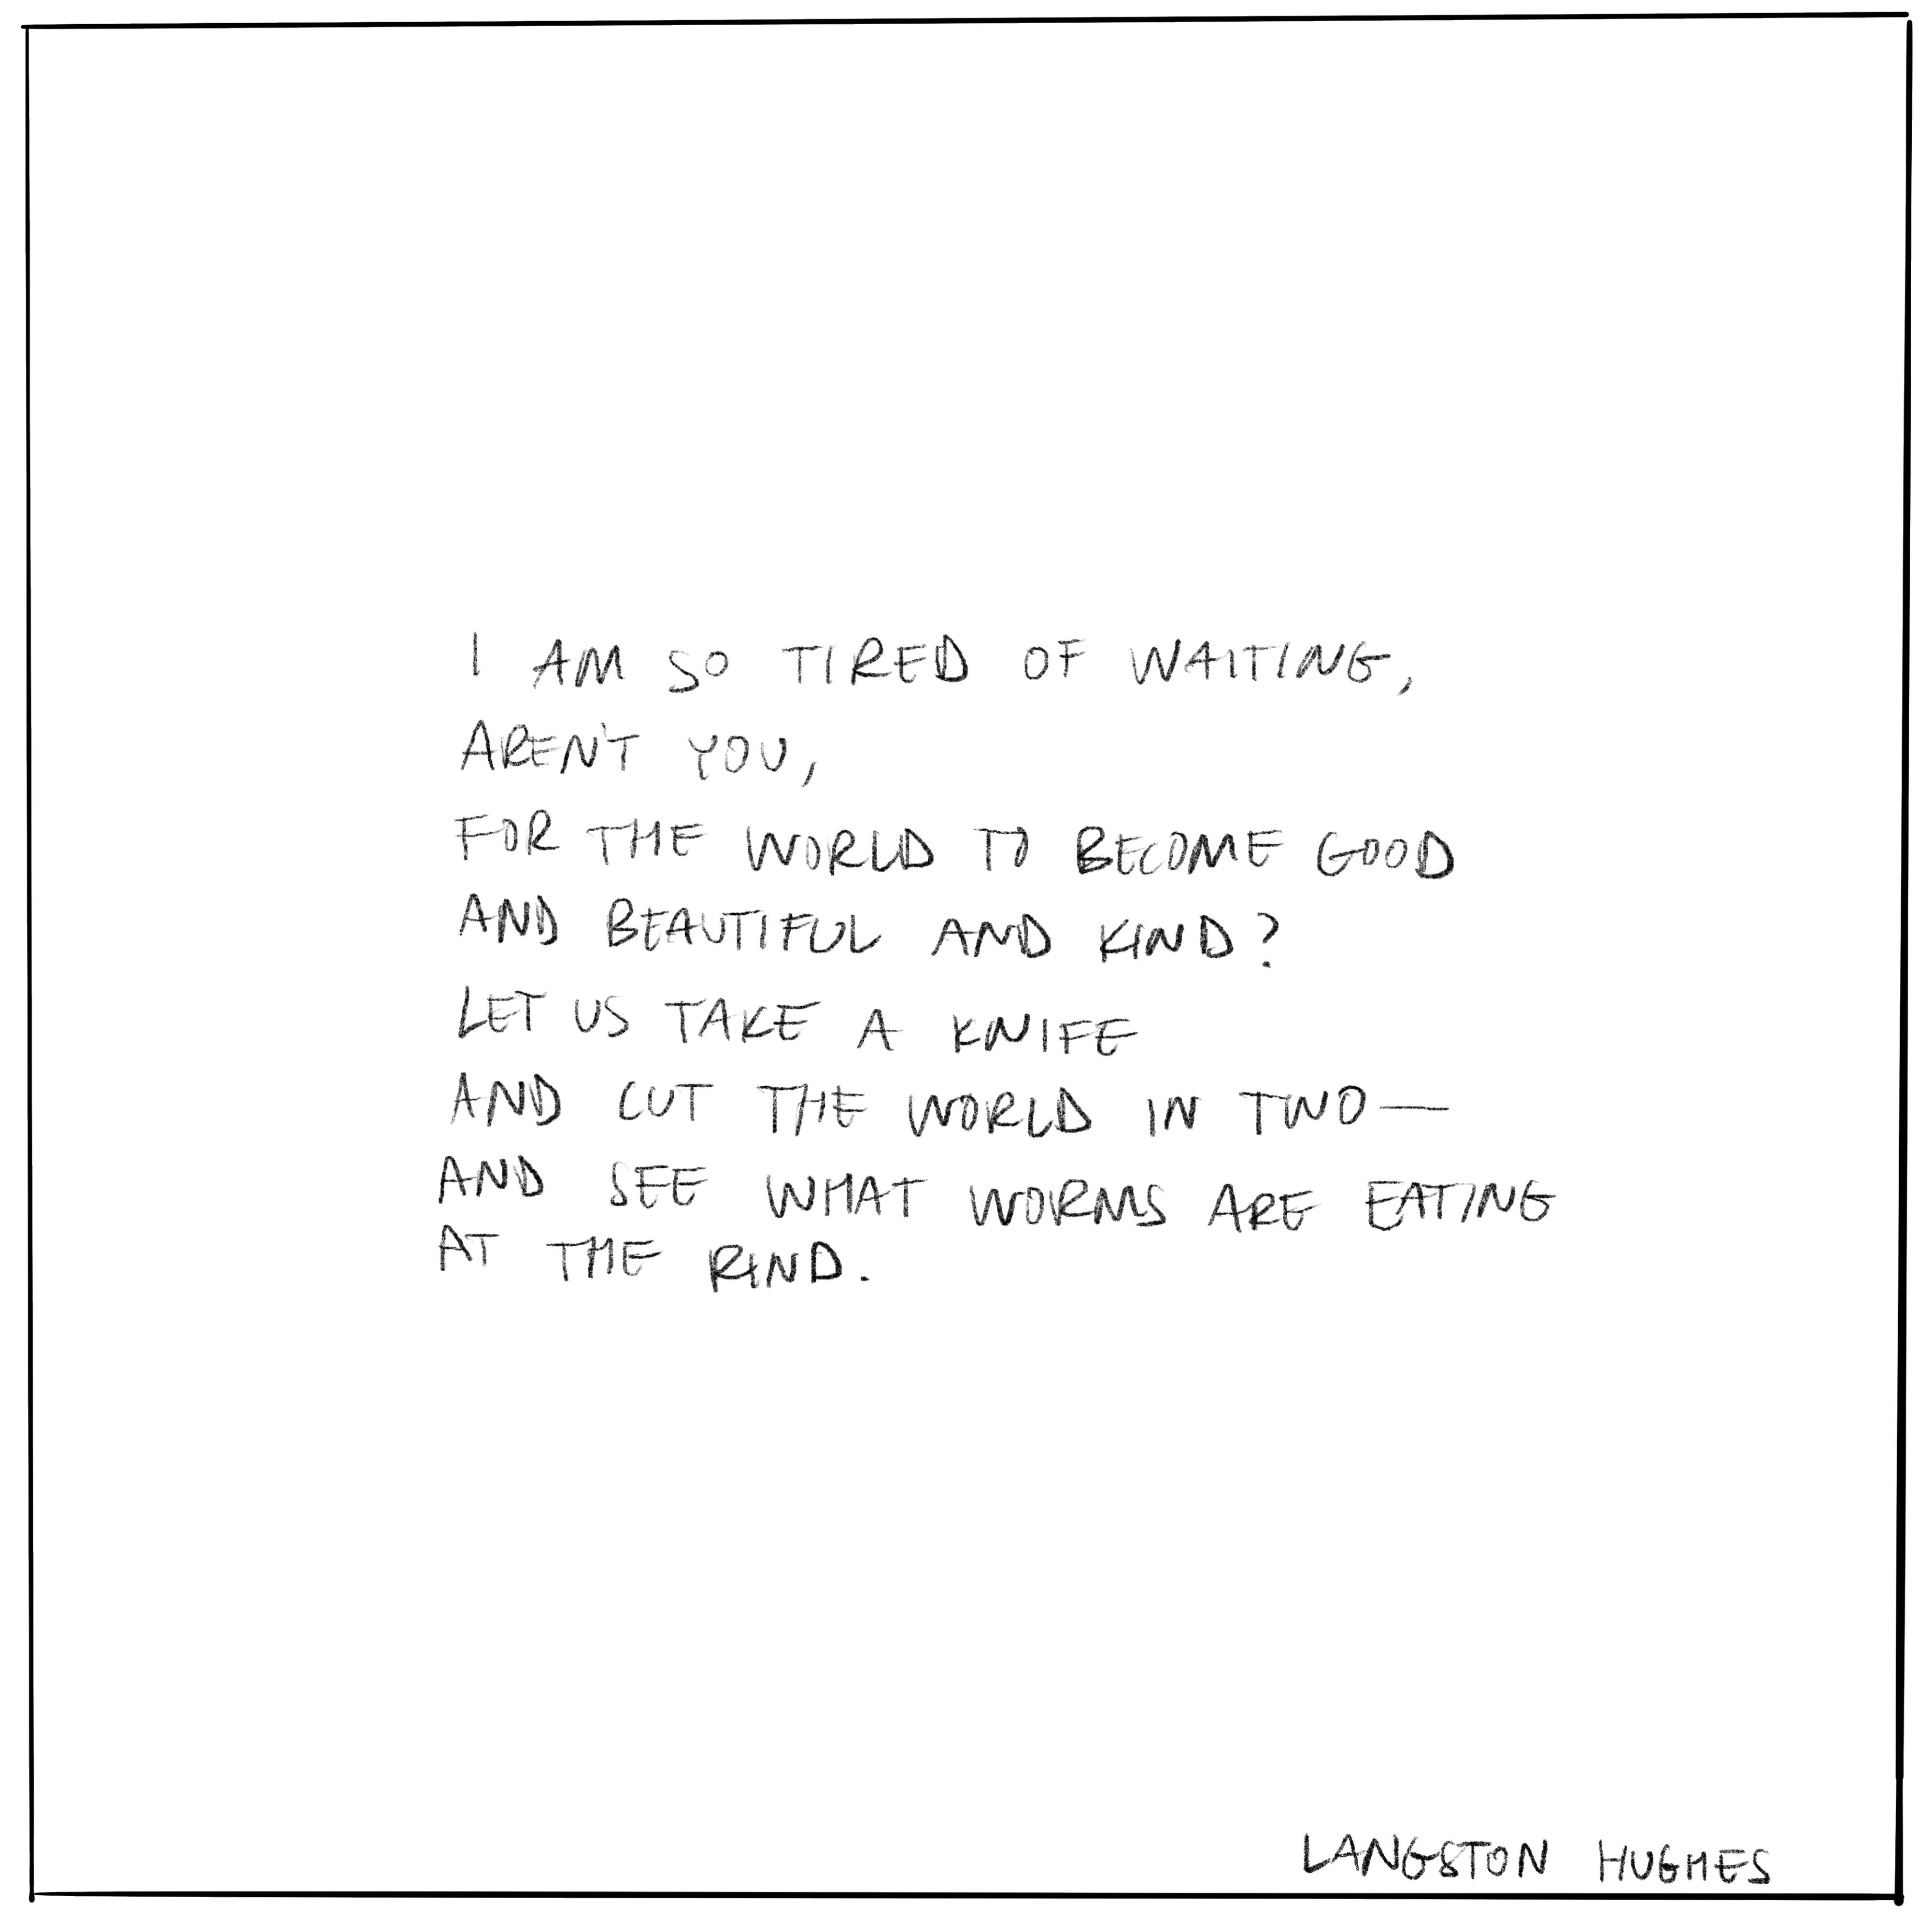 I AM SO TIRED OF WAITING,
AREN'T YOU,
FOR THE WORLD TO BECOME GOOD
AND BEAUTIFUL AND KIND?
LET US TAKE A KNIFE
AND CUT THE WORLD IN TWO—
AND SEE WHAT WORMS ARE EATING
AT THE RIND.
LANGSTON HUGHES